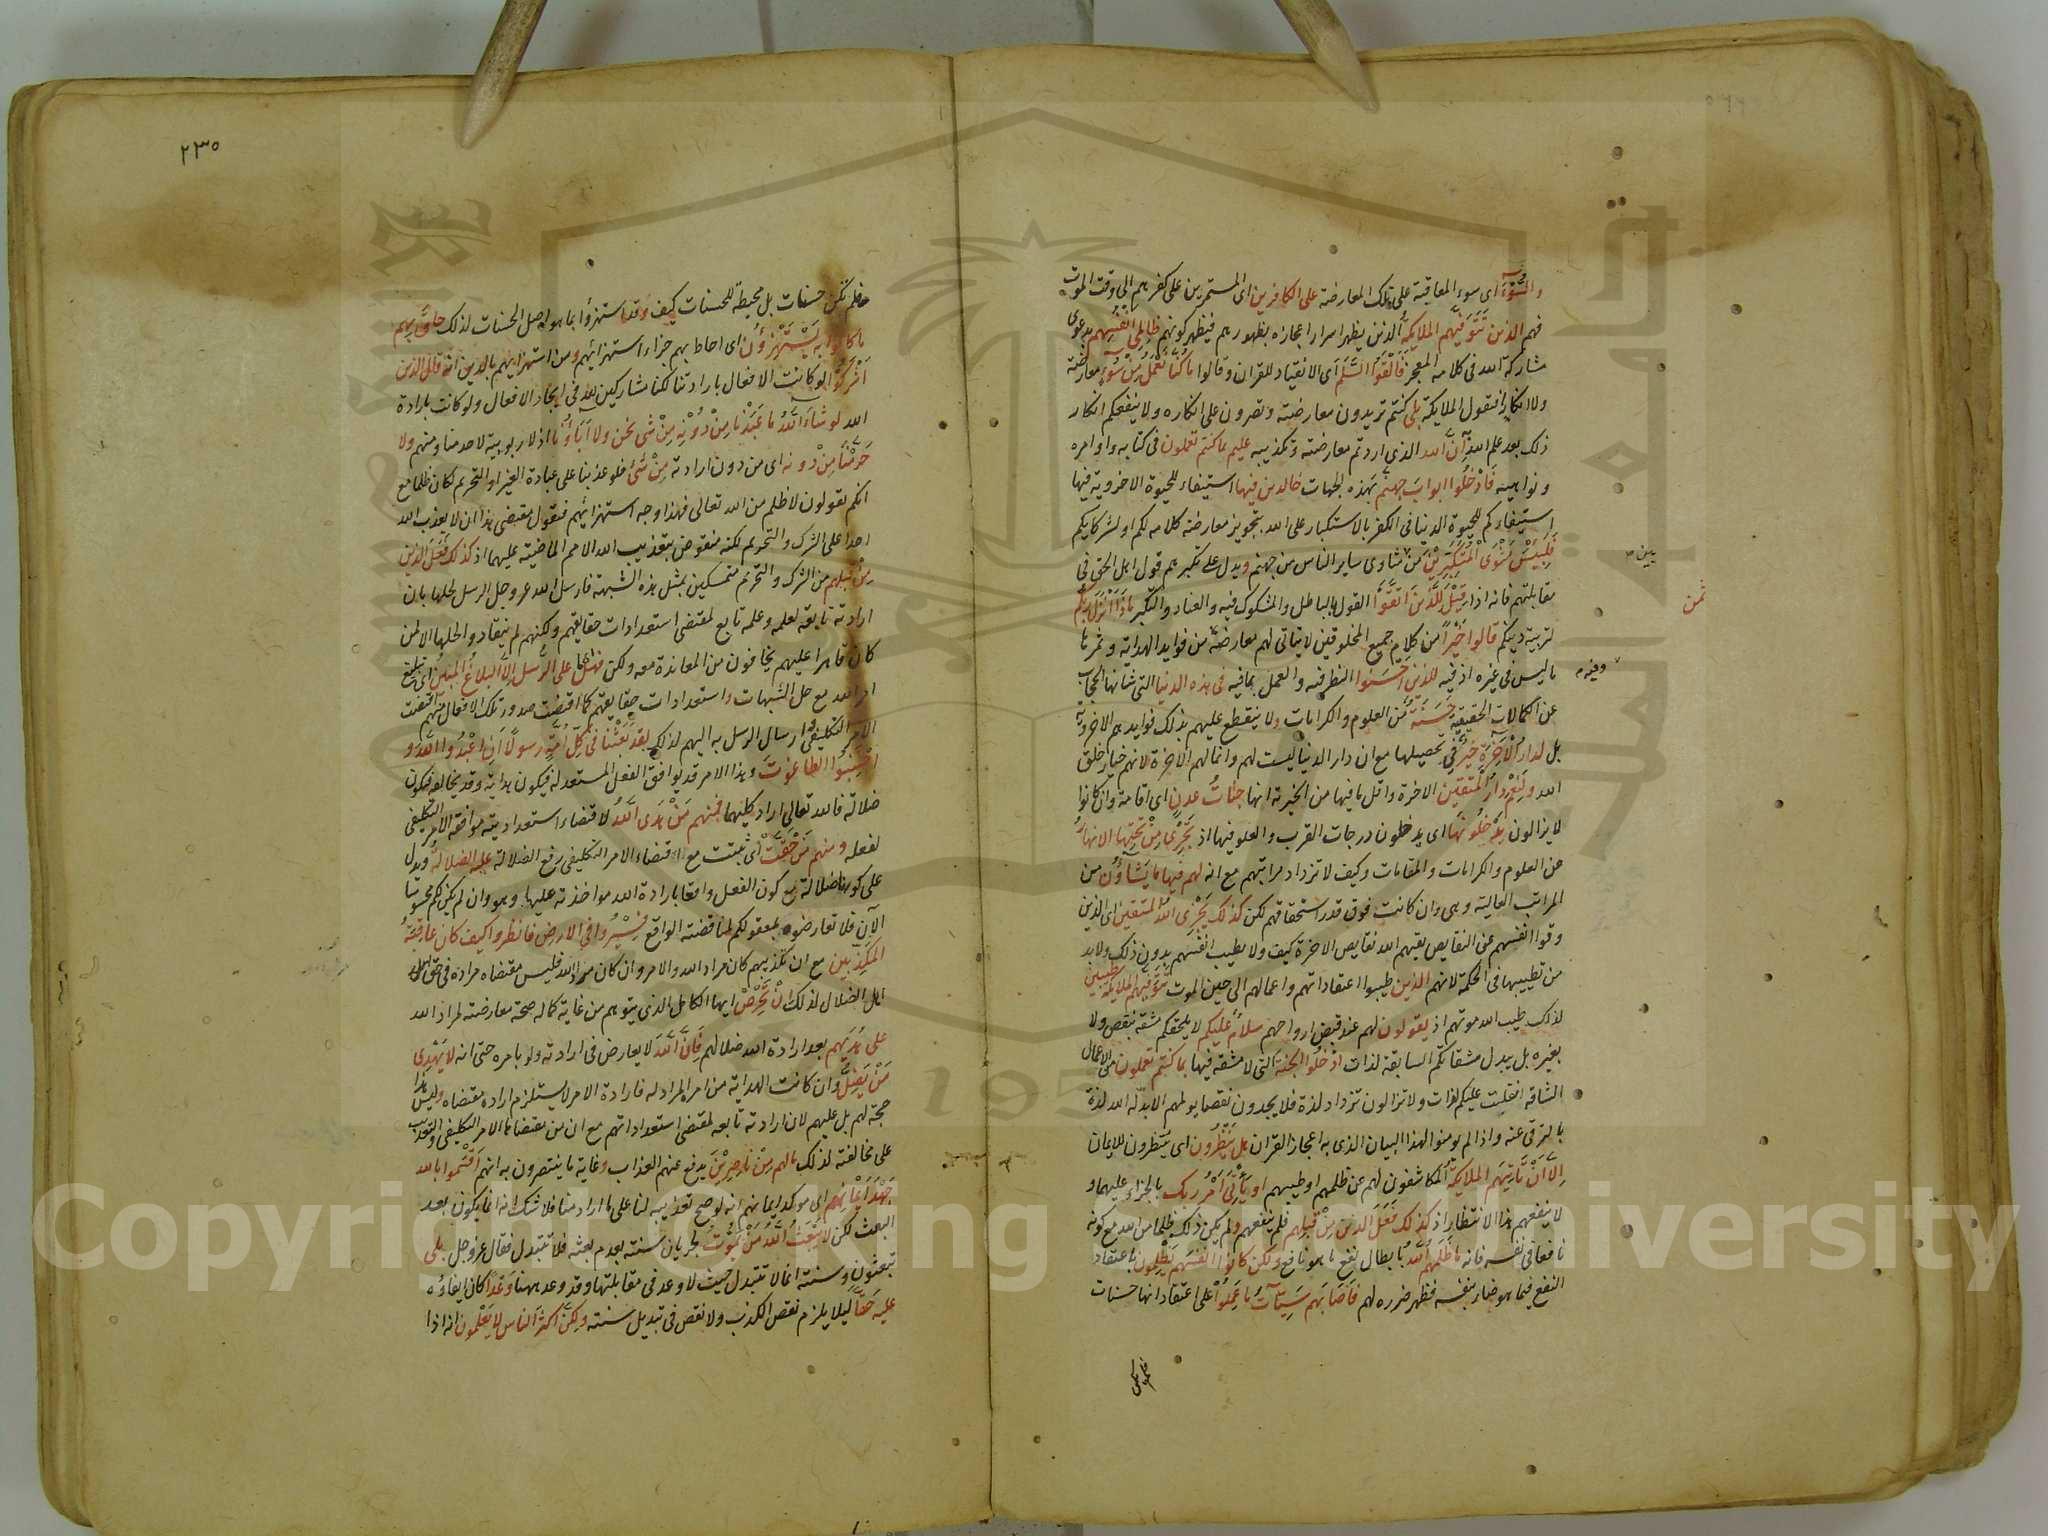 والسوء اى سوء المعاقبة على تلك المعارضة على الكافرين اى المستمرين على كفرهم الى وقت الموت
فهم الذين تتوفيهم الملايكة الذين يظهر اسرار اعجازه بظهورهم فيظهر كونهم ظالمى انفسهم بدعوى
مشاركة الله فى كلامه المعجز فالقوا السلم اى الانقياد للقران وقالوا ما كنا نعمل من سوء معارضته
ولا انكارا فتقول الملايكة بلى كنتم تريدون معارضته وتصرون على انكاره ولا ينفعكم انكار
ذلك بعد علم الله ان الله الذى اردتم معارضته وتكذيبه عليم بما كنتم تعملون فى كتابه واوامره
ونواهيه فادخلوا ابواب جهنم بهذه الجهات خالدين فيها استيفاء للحيوة الاخروية فيها
استيفاءكم للحيوة الدنيا فى الكفر بالاستكبار على الله بتجويز معارضة كلامه لكم او لشركايكم
فلبئس مثوى المتكبرين من مثاوى ساير الناس من جهنم ويدل على تكبرهم قول اهل الحق فى
يبين
ثمن
مقابلتهم فانه اذا قيل للذين اتقوا القول بالباطل والمشكوك فيه والعناد والتكبر ماذا انزل ربكم
لتربية دينكم قالوا خيرا من كلام جميع المخلوقين لا يتاتى لهم معارضة من فوايد الهداية وثمر ما
وفيه
ما ليس فى غيره اذ فيه للذين احسنوا النظر فيه والعمل بما فيه فى هذه الدنيا التى شانها الحجاب
عن الكمالات الحقيقية حسنة من العلوم والكرامات ولا ينقطع عليهم بذلك فوايدهم الاخروية
بل لدار الاخرة خير فى تحصيلها مع ان دار الدنيا ليست لهم وانما لهم الاخرة لانهم خيار خلق
الله ولنعم دار المتقين الاخرة واقل ما فيها من الخيرية انها جنات عدن اى اقامة وان كانوا
لا يزالون يدخلونها اى يدخلون درجات القرب والعلو فيها اذ تجرى من تحتها الانهار
من العلوم والكرامات والمقامات وكيف لا تزداد مراتبهم مع انه لهم فيها ما يشاؤن من
المراتب العالية وهى وان كانت فوق قدر استحقاقهم لكن كذلك يجزى الله المتقين اى الذين
وقوا انفسهم عن النقايص يقيهم الله نقايص الاخرة كيف ولا يطيب انفسهم بدون ذلك ولا بد
من تطييبها فى الحكمة لانهم الذين طيبوا اعتقاداتهم واعمالهم الى حين الموت تتوفيهم الملايكة طيبين
لذلك طيب الله موتهم اذ يقولون لهم عند قبض ارواحهم سلام عليكم لا يلحقكم مشقة بنقص ولا
بغيره بل يبدل مشقاتكم السابقة لذات ادخلوا الجنة التى لا مشقة فيها بما كنتم تعملون من الاعمال
الشاقة انقلبت عليكم لذات ولا تزالون تزداد لذة فلا يجدون نقصا يولمهم الا بدله الله لذة
بالترقى عنه واذا لم يومنوا لهذا البيان الذى به اعجاز القران هل ينظرون اى ينتظرون للايمان
الا ان تاتيهم الملايكة المكاشفون لهم عن ظلمهم او طيبهم او ياتى امر ربك بالجزاء عليهما و
لا ينفعهم هذا الانتظار اذ كذلك فعل الذين من قبلهم فلم ينفعهم ولم يكن ذلك ظلما من الله مع كونه
نافعا فى نفسه فانه ما ظلمهم الله بابطال نفع ما هو نافع ولكن كانوا انفسهم يظلمون باعتقاد
النفع فيما هو ضار بنفسه فظهر ضرره لهم فاصابهم سيئات ما عملوا على اعتقاد انها حسنات
فلم تكن
٢٣٥
فلم تكن حسنات بل محيطة للحسنات كيف وقد استهزأوا بما هو اصل الحسنات لذلك حاق بهم
ما كانوا به يستهزؤن اى احاط بهم جزاء استهزائهم ومن استهزايهم بالدين انه قال الذين
اشركوا لو كانت الافعال بارادتنا لكنا مشاركين لله فى ايجاد الافعال ولو كانت بارادة
الله لو شاء الله ما عبدنا من دونه من شى نحن ولا اباؤنا اذ لا ربوبية لاحد منا ومنهم ولا
حرمنا من دونه اى من دون ارادته من شئ فلو عذبنا على عبادة الغير او التحريم لكان ظلما مع
انكم تقولون لا ظلم من الله تعالى فهذا وجه استهزائهم فنقول مقتضى هذا ان لا يعذب الله
احدا على الشرك والتحريم لكنه منقوض بتعذيب الله الامم الماضية عليهما اذ كذلك فعل الذين
من قبلهم من الشرك والتحريم متمسكين بمثل هذه الشبهة فارسل الله عز وجل الرسل لحلها بان
ارادته تابعة لعلمه وعلمه تابع لمقتضى استعدادات حقايقهم ولكنهم لم ينقادوا لحلها الا لمن
كان قاهرا عليهم يخافون من المعاندة معه ولكن فهل على الرسل الا البلاغ المبين اى تبليغ
امر الله مع حل الشبهات واستعدادات حقايقهم كما اقتضت صدور تلك الافعال منهم اقتضت
الامر التكليفى ارسال الرسل به اليهم لذلك لقد بعثنا فى كل امة رسولا ان اعبدوا الله و
اجتنبوا الطاغوت وهذا الامر قد يوافق الفعل المستعد له فيكون هداية وقد يخالفه فيكون
ضلالة فالله تعالى اراد كليهما فمنهم من هدى الله لاقتضاء استعداديته موافقة الامر التكليفى
لفعله ومنهم من حقت اى ثبتت مع اقتضاء الامر التكليفى رفع الضلالة عليه الضلالة ويدل
على كونها ضلالة مع كون الفعل واقعا بارادة الله مواخذته عليها وهو وان لم يكن لكم محسوسا
الآن فلا تعارضوه بمعقولكم لمناقضته الواقع فسيروا فى الارض فانظروا كيف كان عاقبة
المكذبين مع ان تكذيبهم كان مراد الله والامر وان كان مراد الله فليس مقتضاه مراده فى حق
اهل الضلال لذلك ان تحرص ايها الكامل الذى يتوهم من غاية كماله صحة معارضته لمراد الله
على هديهم بعد ارادة الله ضلالهم فان الله لا يعارض فى ارادته ولو بامره حتى انه لا يهدى
من يضل وان كانت الهداية من امره المراد له فارادة الامر لا يستلزم ارادة مقتضاه وليس هذا
حجة لهم بل عليهم لان ارادته تابعة لمقتضى استعداداتهم مع ان من مقتضاها الامر التكليفى والتعذيب
على مخالفته لذلك ما لهم من ناصرين يدفع عنهم العذاب وغاية ما ينتصرون به انهم اقسموا بالله
جهد ايمانهم اى موكد ايمانهم انه لو صح تعذيبه لنا على ما اراد منا فلا شك انه انما يكون بعد
البعث لكن لا يبعث الله من يموت لجريان سنته بعدم بعثه فلا تتبدل فقال عز وجل بلى
تبعثون وسنته انما لا تتبدل حيث لا وعد فى مقابلتها وقد وعد ههنا وعدا كان ايفاؤه
عليه حقا ليلا يلزم نقص الكذب ولا نقص فى تبديل سنته ولكن اكثر الناس لا يعلمون انه اذا
Copyright © King University
195